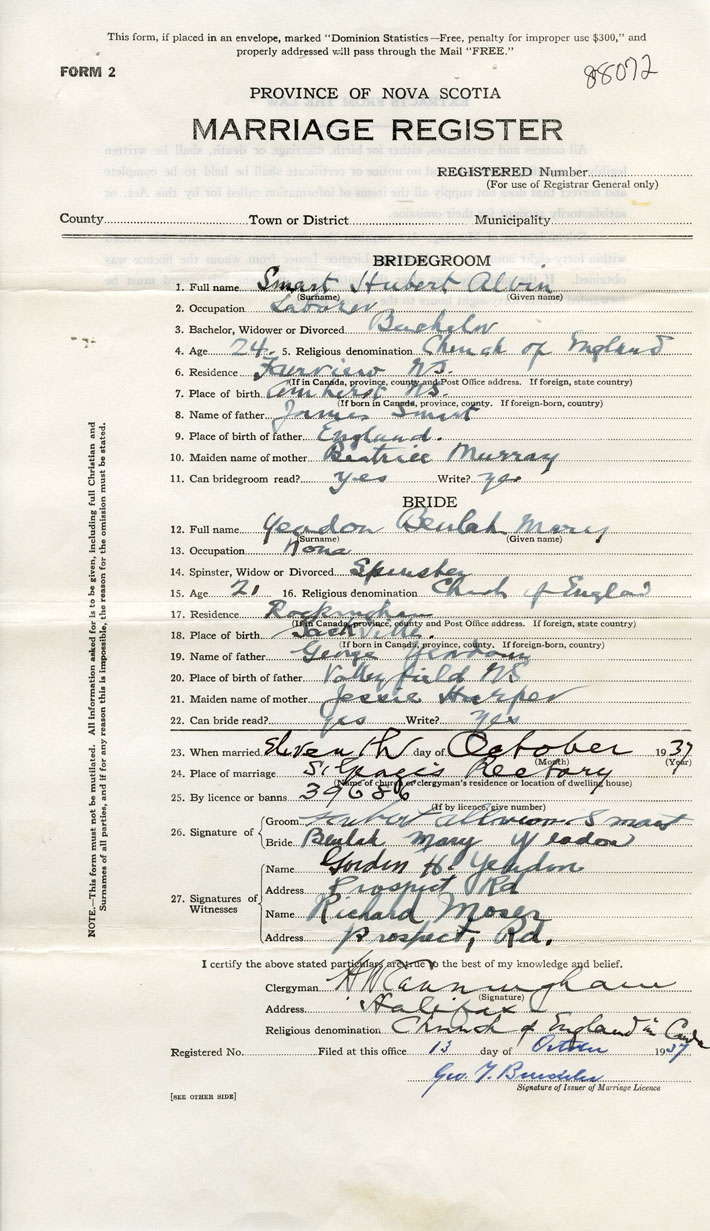 This form, if placed in an envelope, marked "Dominion Statistics—Free, penalty for improper use $300," and
properly addressed will pass through the Mail "FREE."
FORM 2
88072
PROVINCE OF NOVA SCOTIA
MARRIAGE REGISTER
REGISTERED Number
(For use of Registrar General only)
County Town or District Municipality
BRIDEGROOM
1. Full name Smart Hubert Alvin
(Surname) (Given name)
2. Occupation Laborer
3. Bachelor, Widower or Divorced Bachelor
4. Age 24. 5. Religious denomination Church of England
6. Residence Fairview NS.
(If in Canada, province, county and Post Office address. If foreign, state country)
7. Place of birth Amherst NS.
(If born in Canada, province, county. If foreign-born, country)
8. Name of father James Smart
9. Place of birth of father England.
10. Maiden name of mother Beatrice Murray
11. Can bridegroom read? yes Write? yes
BRIDE
12. Full name Yeadon Beulah Mary
(Surname) (Given name)
13. Occupation None
14. Spinster, Widow or Divorced Spinster
15. Age 21 16. Religious denomination Church of England
17. Residence Rockingham
(If in Canada, province, county and Post Office address. If foreign, state country)
18. Place of birth Sackville.
(If born in Canada, province, county. If foreign-born, country)
19. Name of father George Yeadon
20. Place of birth of father Valleyfield NS
21. Maiden name of mother Jessie Harper
22. Can bride read? yes Write? yes
23. When married Eleventh day of October 1937
(Month) (Year)
24. Place of marriage St Georges Rectory
(Name of church or clergyman's residence or location of dwelling house)
25. By licence or banns 39686
(If by licence, give number)
26. Signature of Groom Smart
Bride Beulah Mary Yeadon
27. Signatures of Witnesses Name Gordon H. Yeadon
Address Prospect Rd
Name Richard Moser
Address Prospect, Rd.
I certify the above stated particulars are true to the best of my knowledge and belief.
Clergyman H W Cunningham
(Signature)
Address Halifax
Religious denomination Church of England in Canada
Registered No. Filed at this office 13 day of October 1937
Geo. T.
Signature of Issuer of Marriage Licence
[SEE OTHER SIDE]
NOTE.—This form must not be mutilated. All information asked for is to be given, including full Christian and
Surnames of all parties, and if for any reason this is impossible, the reason for the omission must be stated.